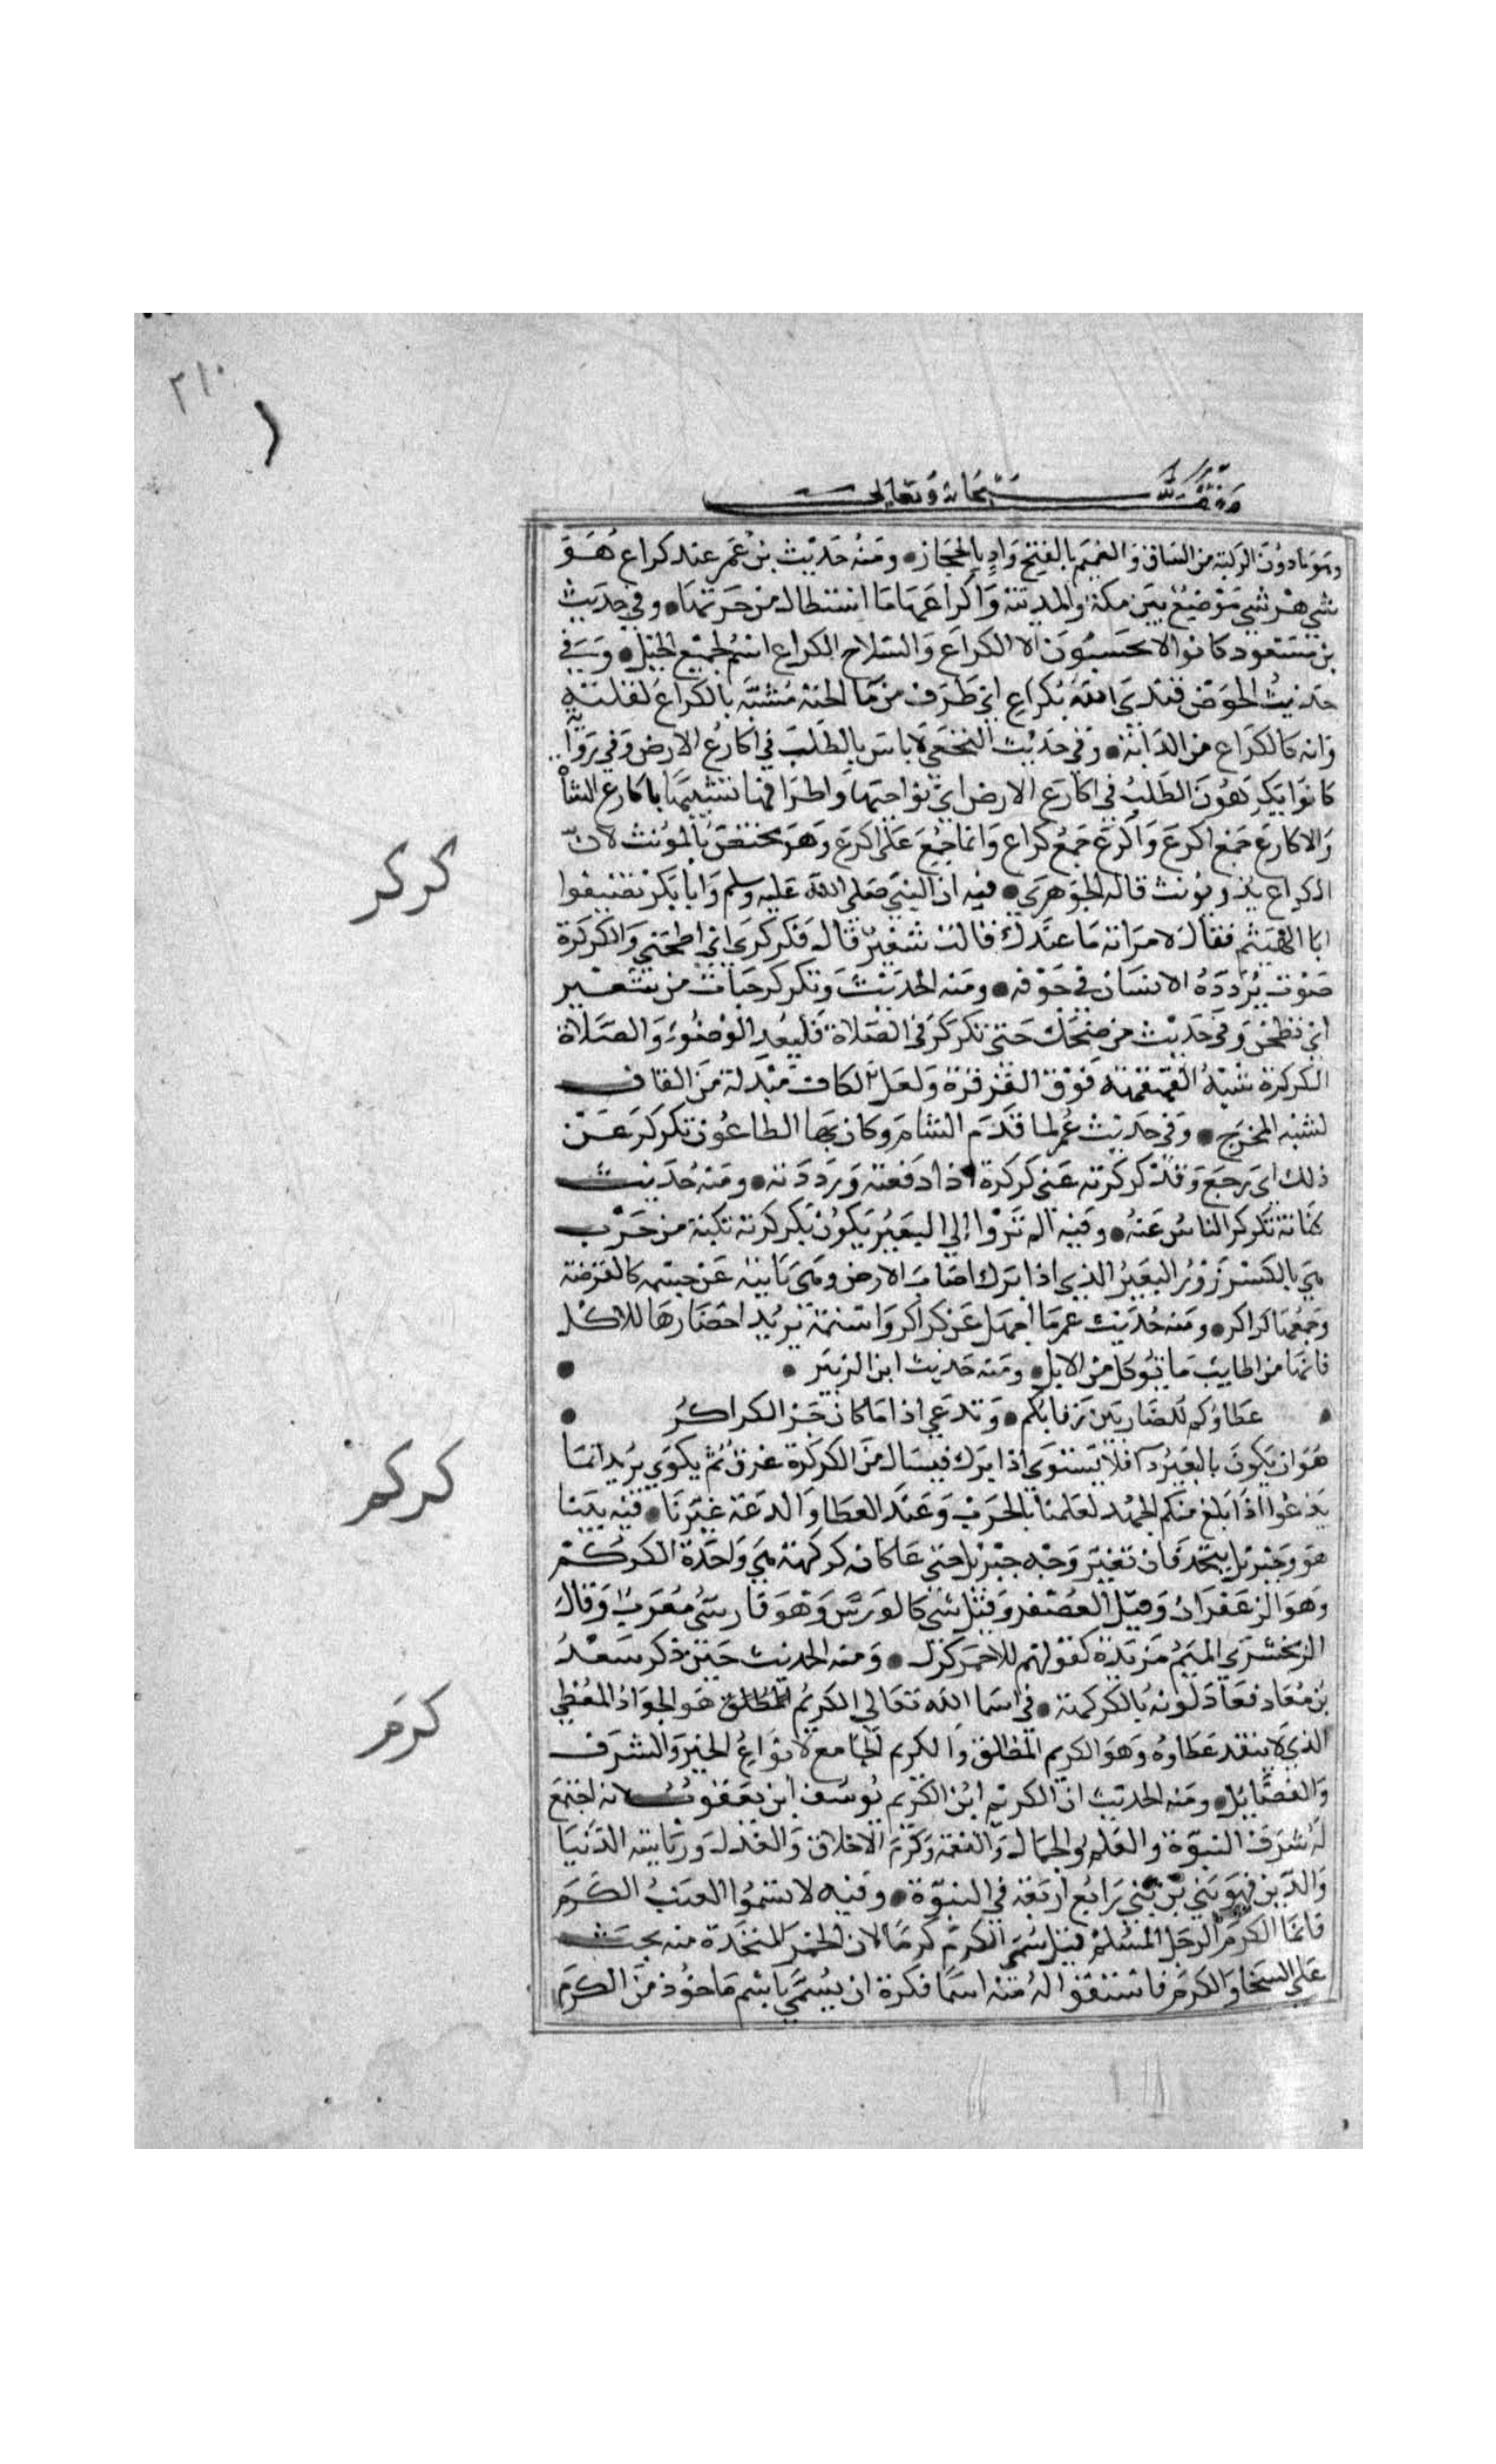 ٢١٠
وقف لله سبحانه وتعالى
وهو ما دون الركبة من الساق والغميم بالفتح واد بالحجاز ومنه حديث بن عمر عند كراع هو
شي هرشي موضع بين مكة والمدينة واكراعها ما استطال من حرتها وفي حديث
بن مسعود كانوا لا يحسبون الا الكراع والسلاح الكراع اسم لجميع الخيل وفي
حديث الحوض فبدى الله بكراع اي طرف من ما الجنة مشبه بالكراع لقلته
وانه كالكراع من الدابة وفي حديث النخعي لا باس بالطلب في اكارع الارض وفي رواية
كانوا يكرهون الطلب في اكارع الارض اي نواحيها واطرافها تشبيها باكارع الشاة
والاكارع جمع اكرع واكرع جمع كراع وانما جمع على اكرع وهو يختص بالمونث لان
الكراع يذ ويونث قاله الجوهري فيه ان النبي صلى الله عليه وسلم وابا بكر تضيفوا
كركر
ابا الهيثم فقال لامراته ما عندك قالت شعير قال فكركري اي اطحني والكركرة
صوت يردده الانسان في جوفه ومنه الحديث وتكركر حبات من شعير
اي تطحن وفي حديث من ضحك حتى تكركر في الصلاة فليعد الوضوء والصلاة
الكركرة شبه القهقهة فوق القرقرة ولعل الكاف مبدلة من القاف
لشبه المخرج وفي حديث عمر لما قدم الشام وكان بها الطاعون تكركر عن
ذلك اي رجع وقد كركرته عني كركرة اذا دفعته ورددته ومنه حديث
كنانة تكركر الناس عنه وفيه الم تروا إلي البعير يكون بكركرته نكبة من جرب
هي بالكسر زور البعير الذي اذا برك اصاب الارض وهي ناتية عن جسمه كالقرصة
وجمعها كراكر ومنه حديث عمر ما اجهل عن كراكر واسنمة يريد احضارها للاكل
فانها من اطايب ما يوكل من الابل ومنه حديث ابن الزبير
عطاوكم للضاربين رقابكم وتدعي اذا ما كان حز الكراكر
هو ان يكون بالبعير دا فلا يستوي اذا برك فيسال من الكركرة عرق ثم يكوي يريد انما
كركم
يدعوا اذا بلغ منكم الجهد لعلمنا بالحرب وعند العطا والدعة غيرنا فيه بينا
هو وجبريل يتحدثان تغير وجه جبريل حتى عاد كانه كركمة هي واحدة الكركم
وهو الزعفران وقيل العصفر وقيل شي كالورس وهو فارسي معرب وقال
الزمخشري الميم مزيدة كقولهم للاحمر كرك ومنه الحديث حين ذكر سعد
بن معاذ فعاد لونه كالكركمة في اسما الله تعالى الكريم المطلق هو الجواد المعطي
كرم
الذي لا ينفد عطاوه وهو الكريم المطلق والكريم الجامع لانواع الخير والشرف
والفضايل ومنه الحديث ان الكريم ابن الكريم يوسف ابن يعقوب لانه اجتمع
له شرف النبوة والعلم والجمال والعفة وكرم الاخلاق والعدل ورياسة الدنيا
والدين فهو نبي بن نبي رابع اربعة في النبوة وفيه لا تسموا العنب الكرم
فانما الكرم الرجل المسلم قيل سمي الكرم كرما لان الخمر المتخذة منه يحث
على السخا والكرم فاشتقوا له منه اسما فكره ان يسمي باسم ماخوذ من الكرم